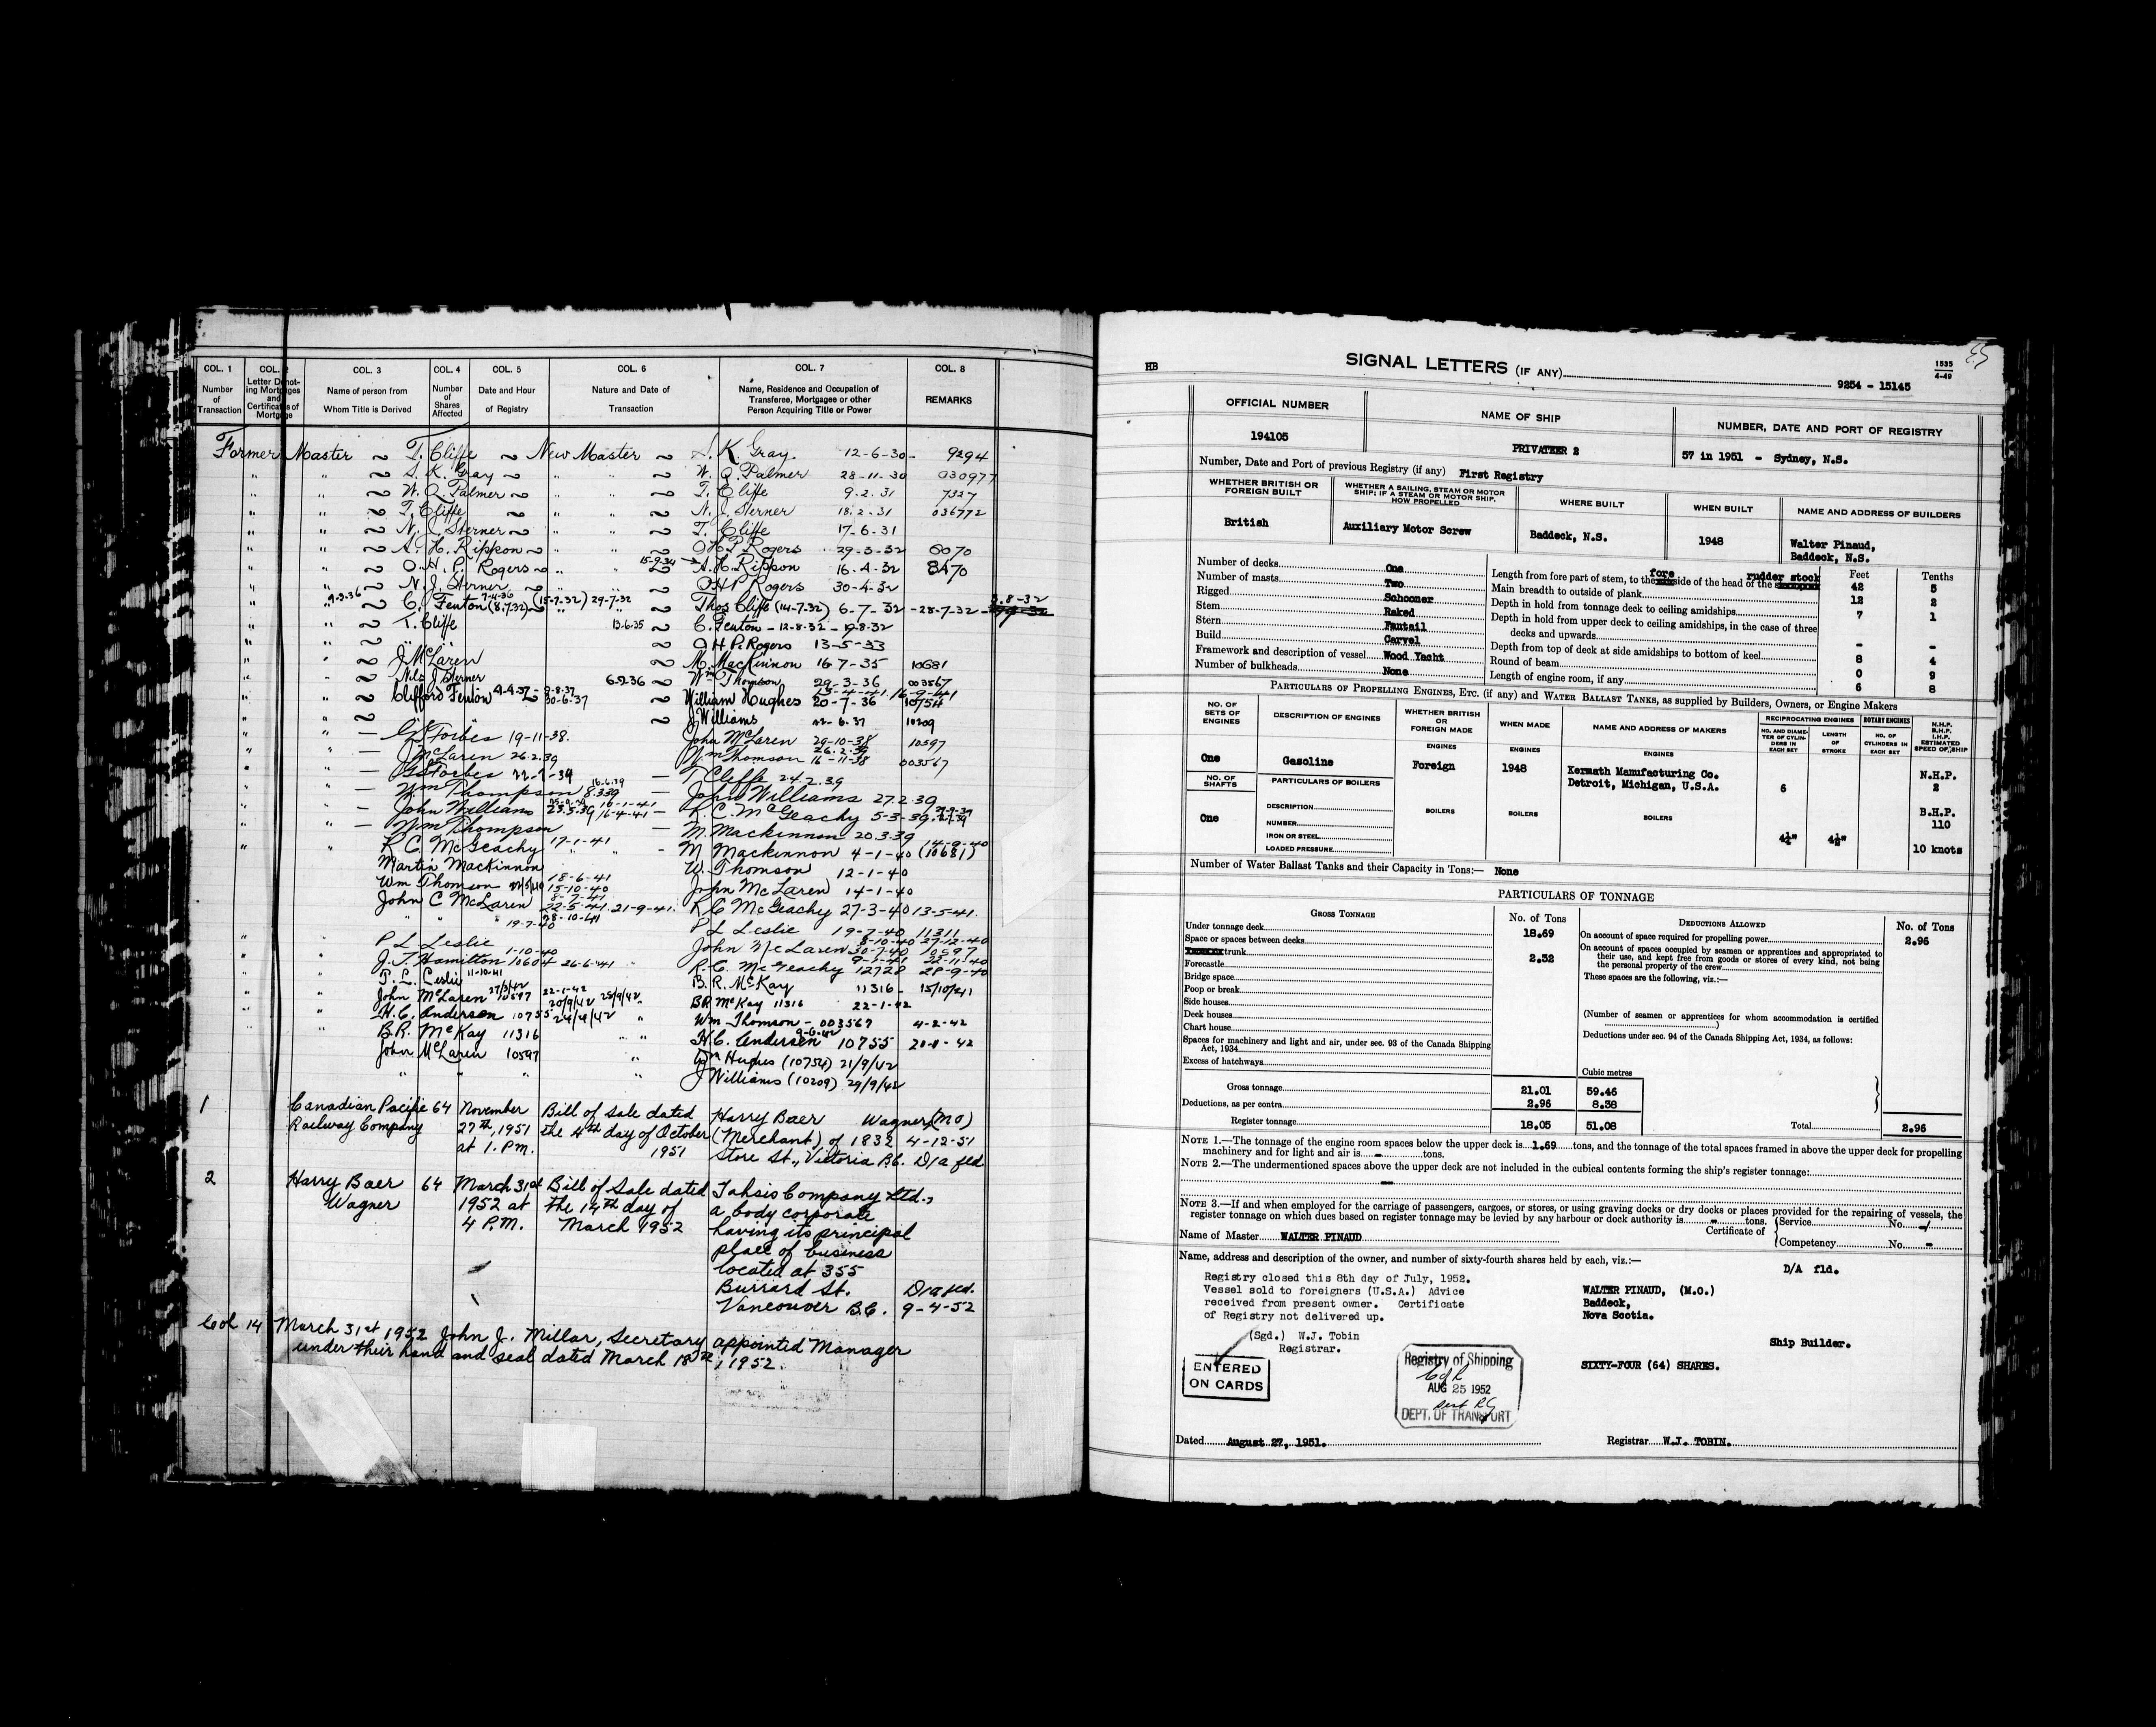 COL. 1 COL. 2 COL. 3 COL. 4 COL. 5 COL. 6 COL. 7 COL. 8
Number of Transaction
Letter Denoting Mortgages and Certificates of Mortgage
Name of person from Whom Title is Derived
Number of Shares Affected
Date and Hour of Registry
Nature and Date of Transaction
Name, Residence and Occupation of Transferee, Mortgagee or other Person Acquiring Title or Power
REMARKS
Former Master ~ T. Cliffe ~ New Master ~ S. K Gray. 12-6-30- 9294
" " ~ S. K. Gray ~ " " ~ W. O. Palmer 28-11-30 030977
" " ~ W. O. Palmer ~ " " ~ T. Cliffe 9.2.31 7327
" " ~ T. Cliffe ~ " " ~ N. J. Sterner 18.2.31 036772
" " ~ N. J. Sterner ~ " " ~ T. Cliffe 17-6-31
" " ~ A. H. Rippon ~ " " ~ O H P Rogers 29-3-32 8070
" " ~ O. H. P. Rogers ~ " 15-9-34 A. H. Rippon 16-4-32 8470
" " ~ N. J. Sterner ~ " " ~ O H P Rogers 30-4-32
" 9-3-36 ~ C. Fenton (8.7.32) 7-4-36 (15-7-32) 29-7-32 " Thos Cliffe (14-7-32) 6-7-32 -28-7-32- 3.8-32
" " ~ T. Cliffe 13-6-35 ~ C. Fenton - 12-8-32 - 19-8-32
" " ~ " O H P. Rogers 13-5-33
" " ~ J McLaren ~ M. MacKinnon 16-7-35 10681
" " ~ Nils J Sterner 6-9-36 ~ Wm Thomson 29-3-36 003567
" " ~ Clifford Fenton 4-4-37- 9-8-37 30-6-37 William Hughes 20-7-36 15-4-41. 16-9-41 10754
" " ~ " ~ J Williams 22-6-37 10209
" " — G S Forbes 19-11-38. John McLaren 29-10-38 10597
" " — J McLaren 26.2.39 Wm Thomson 16-11-38 26.2.39 003567
" " — G S Forbes 22-2-39 — T Cliffe 24.2.39
" " — Wm Thompson 8.3.39 16.6.39 — John Williams 27.2.39
" " — John Williams 23.5.39 16-1-41 16-4-41 — R. C. McGeachy 5-3-39
" " — Wm Thompson — M. Mackinnon 20.3.39
" " R C. McGeachy 17-1-41 " - M Mackinnon 4-1-40 (10681) 14-9-40
Martin MacKinnon W. Thomson 12-1-40
Wm Thomson 27/5/40 18-6-41 15-10-40 John McLaren 14-1-40
John C McLaren 8-7-41 22-5-41 21-9-41. R C McGeachy 27-3-40 13-5-41.
" " 19-7-40 28-10-41 P L Leslie 19-7-40 11311
" " P L. Leslie John McLaren 30-7-40 8-10-40 27-12-40 10597
" " J. T. Hamilton 10604 1-10-40 26-6-41 " R. C. McGeachy 12728 9-1-41 22-11-40 28-9-40
" " P. L. Leslie 11-10-41 B. R. McKay 11316 - 15/10/41
" " John McLaren 10597 27/3/42 22-1-42 20/9/42 25/9/42 " B R McKay 11316 22-1-42
" " H. C. Anderson 10755 24/9/42 " Wm Thomson - 003567 4-2-42
" " B. R. McKay 11316 " " H. C. Andersen 9-6-42 10755 20-1-42
John McLaren 10597 " Wm Hughes (10754) 21/9/42
" " " " J Williams (10209) 29/9/42
1 Canadian Pacific 64 November Bill of Sale dated Harry Baer Wagner (MO)
Railway Company 27th, 1951 the 4th day of October (Merchant) of 1832 4-12-51
at 1. P.M. 1951 Store St., Victoria B.C. D/a fld
2 Harry Baer 64 March 31st Bill of Sale dated Tahsis Company Ltd.,
Wagner 1952 at the 14th day of a body corporate
4 P.M. March 1952 having its principal
place of business
located at 355
Burrard St. D/a fld.
Vancouver B.C. 9-4-52
Col 14 March 31st 1952 John J. Millar, Secretary appointed Manager
under their hand and seal dated March 18th, 1952.
HB SIGNAL LETTERS (IF ANY) 9254 - 15145
1535
4-49
OFFICIAL NUMBER NAME OF SHIP NUMBER, DATE AND PORT OF REGISTRY
194105 PRIVATEER 2 57 in 1951 - Sydney, N.S.
Number, Date and Port of previous Registry (if any) First Registry
WHETHER BRITISH OR FOREIGN BUILT
WHETHER A SAILING, STEAM OR MOTOR SHIP; IF A STEAM OR MOTOR SHIP, HOW PROPELLED
WHERE BUILT
WHEN BUILT
NAME AND ADDRESS OF BUILDERS
British Auxiliary Motor Screw Baddeck, N.S. 1948 Walter Pinaud,
Baddeck, N.S.
Number of decks One
Number of masts Two
Rigged Schooner
Stem Raked
Stern Fantail
Build Carvel
Framework and description of vessel Wood Yacht
Number of bulkheads None
Feet Tenths
Length from fore part of stem, to the fore side of the head of the rudder stock 42 5
Main breadth to outside of plank 12 2
Depth in hold from tonnage deck to ceiling amidships 7 1
Depth in hold from upper deck to ceiling amidships, in the case of three
decks and upwards - -
Depth from top of deck at side amidships to bottom of keel 8 4
Round of beam 0 9
Length of engine room, if any 6 8
PARTICULARS OF PROPELLING ENGINES, ETC. (if any) and WATER BALLAST TANKS, as supplied by Builders, Owners, or Engine Makers
NO. OF SETS OF ENGINES
DESCRIPTION OF ENGINES
WHETHER BRITISH OR FOREIGN MADE
WHEN MADE
NAME AND ADDRESS OF MAKERS
RECIPROCATING ENGINES ROTARY ENGINES
NO. AND DIAMETER OF CYLINDERS IN EACH SET
LENGTH OF STROKE
NO. OF CYLINDERS IN EACH SET
N.H.P. B.H.P. I.H.P. ESTIMATED SPEED OF SHIP
ENGINES ENGINES ENGINES
One Gasoline Foreign 1948 Kermath Manufacturing Co.
Detroit, Michigan, U.S.A. 6 N.H.P.
2
NO. OF SHAFTS
PARTICULARS OF BOILERS
One
DESCRIPTION
NUMBER
IRON OR STEEL
LOADED PRESSURE
BOILERS BOILERS BOILERS
B.H.P.
110
4¼" 4½" 10 knots
Number of Water Ballast Tanks and their Capacity in Tons:— None
PARTICULARS OF TONNAGE
GROSS TONNAGE No. of Tons DEDUCTIONS ALLOWED No. of Tons
Under tonnage deck 18.69
Space or spaces between decks
trunk 2.32
Forecastle
Bridge space
Poop or break
Side houses
Deck houses
Chart house
Spaces for machinery and light and air, under sec. 93 of the Canada Shipping
Act, 1934
Excess of hatchways
On account of space required for propelling power 2.96
On account of spaces occupied by seamen or apprentices and appropriated to
their use, and kept free from goods or stores of every kind, not being
the personal property of the crew
These spaces are the following, viz.:—
(Number of seamen or apprentices for whom accommodation is certified
)
Deductions under sec. 94 of the Canada Shipping Act, 1934, as follows:
Cubic metres
Gross tonnage 21.01 59.46
Deductions, as per contra 2.96 8.38
Register tonnage 18.05 51.08 Total 2.96
NOTE 1.—The tonnage of the engine room spaces below the upper deck is 1.69 tons, and the tonnage of the total spaces framed in above the upper deck for propelling
machinery and for light and air is - tons.
NOTE 2.—The undermentioned spaces above the upper deck are not included in the cubical contents forming the ship's register tonnage:
—
NOTE 3.—If and when employed for the carriage of passengers, cargoes, or stores, or using graving docks or dry docks or places provided for the repairing of vessels, the
register tonnage on which dues based on register tonnage may be levied by any harbour or dock authority is - tons.
Name of Master WALTER PINAUD Certificate of {Service No. -
Competency No. -
Name, address and description of the owner, and number of sixty-fourth shares held by each, viz.:—
D/A fld.
Registry closed this 8th day of July, 1952.
Vessel sold to foreigners (U.S.A.) Advice
received from present owner. Certificate
of Registry not delivered up.
(Sgd.) W.J. Tobin
Registrar.
WALTER PINAUD, (M.O.)
Baddeck,
Nova Scotia.
Ship Builder.
SIXTY-FOUR (64) SHARES.
ENTERED
ON CARDS
Registry of Shipping
AUG 25 1952
DEPT. OF TRANSPORT
Dated August 27, 1951. Registrar W.J. TOBIN.